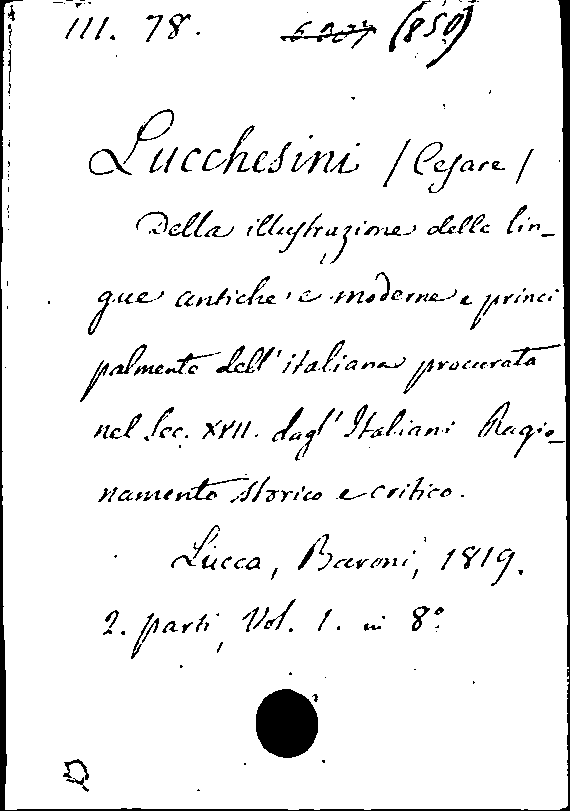 III. 78. (859)
Lucchesini / Cesare /
Della illustrazione delle lin_
gue antiche e moderne e princi
palmente dell'italiana procurata
nel Sec. XVII. dagl'Italiani Ragio_
namento storico e critico.
Lucca, Baroni, 1819.
2. parti, Vol. 1. in 8º